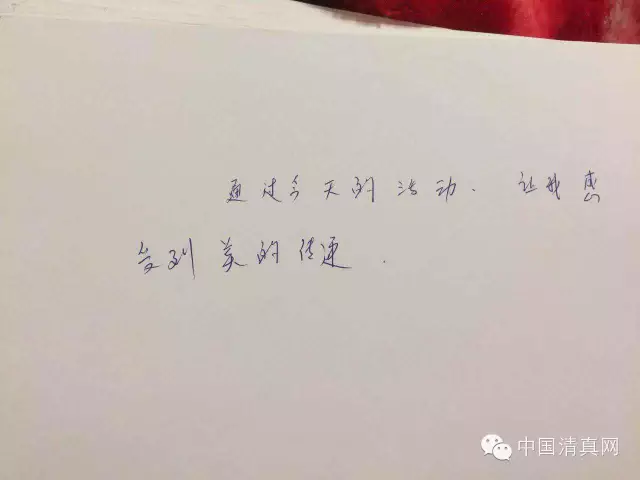 通过今天的活动.让我感
受到美的传递.
中国清真网